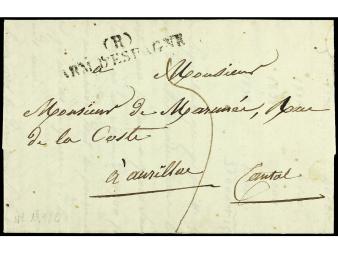 (R)
ARM. D'ESPAGNE
a Monsieur
Monsieur de Marmiés, Rue
de la Coste
à aurillac Cantal